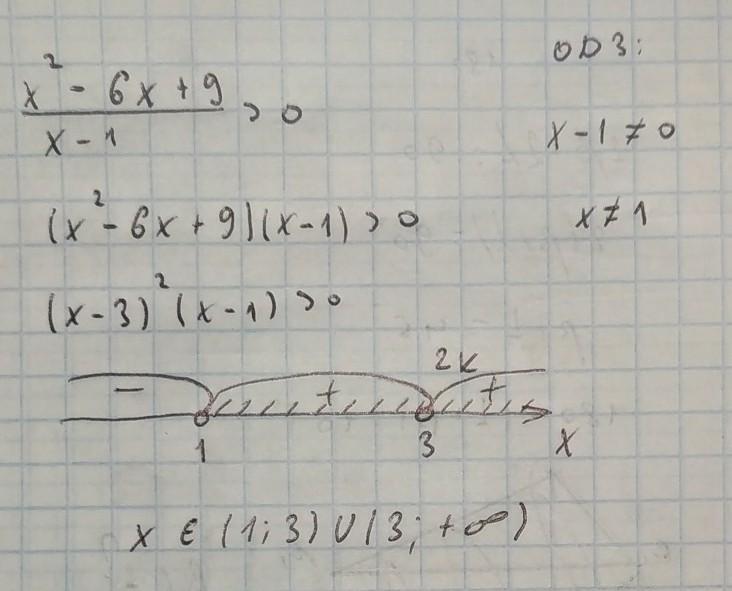 (x² - 6x + 9)/(x - 1) > 0
ОДЗ:
x - 1 ≠ 0
x ≠ 1
(x² - 6x + 9)(x - 1) > 0
(x - 3)² (x - 1) > 0
2k
- + +
1 3 x
x ∈ (1; 3) ∪ (3; +∞)